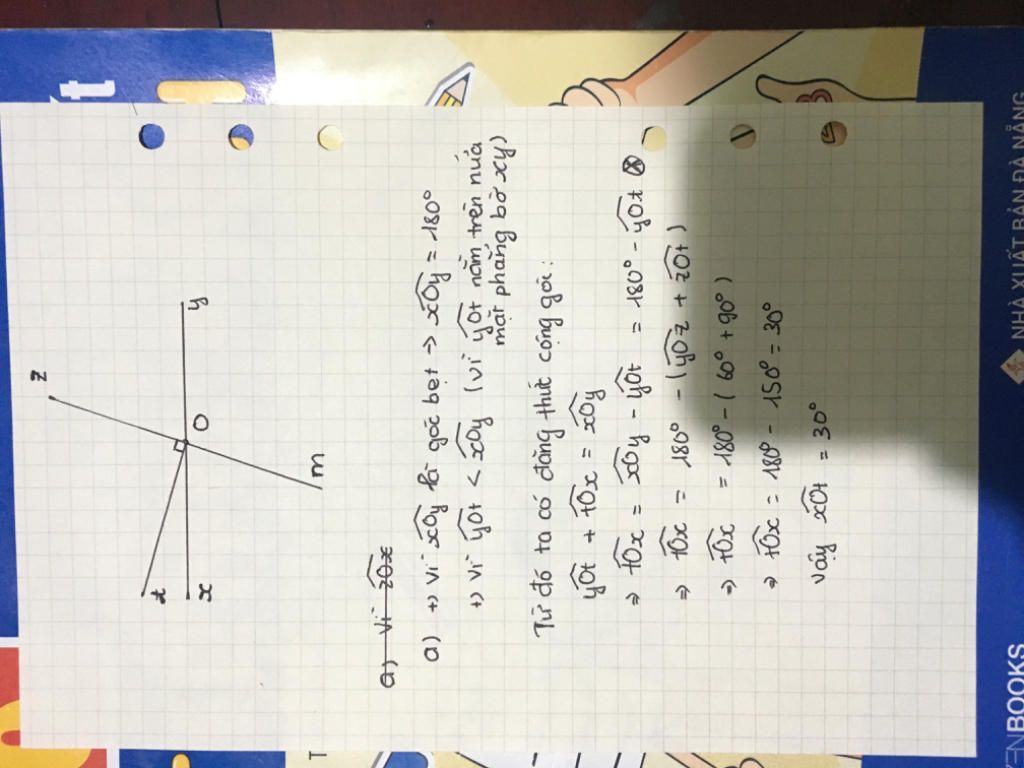 z
y
O
t
x
m
a) vì zOx
a) +) vì xOy là góc bẹt → xOy = 180°
+) vì yOt < xOy (vì yOt nằm trên nửa
mặt phẳng bờ xy)
Từ đó ta có đẳng thức cộng góc:
yOt + tOx = xOy
⇒ tOx = xOy - yOt = 180° - yOt ⊗
⇒ tOx = 180° - (yOz + zOt)
⇒ tOx = 180° - (60° + 90°)
⇒ tOx = 180° - 150° = 30°
vậy xOt = 30°
NHÀ XUẤT BẢN ĐÀ NẴNG
BOOKS